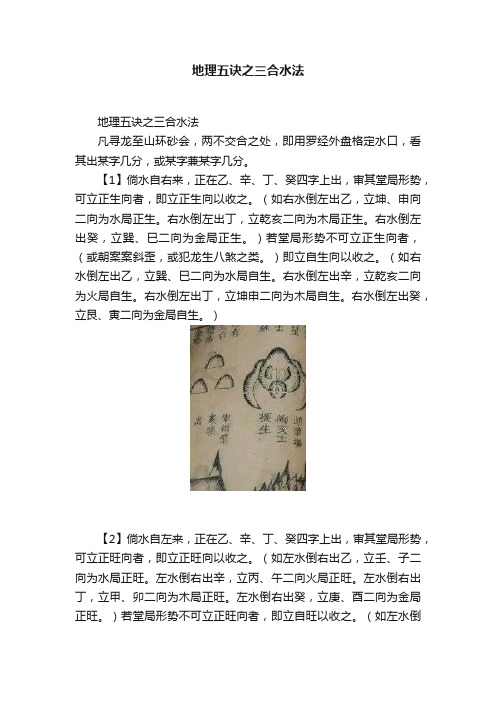 地理五诀之三合水法
地理五诀之三合水法
凡寻龙至山环砂会，两不交合之处，即用罗经外盘格定水口，看
其出某字几分，或某字兼某字几分。
【1】倘水自右来，正在乙、辛、丁、癸四字上出，审其堂局形势，
可立正生向者，即立正生向以收之。（如右水倒左出乙，立坤、申向
二向为水局正生。右水倒左出丁，立乾亥二向为木局正生。右水倒左
出癸，立巽、巳二向为金局正生。）若堂局形势不可立正生向者，
（或朝案案斜歪，或犯龙生八煞之类。）即立自生向以收之。（如右
水倒左出乙，立巽、巳二为水局自生。右水倒左出辛，立乾亥二向
为火局自生。右水倒左出丁，立坤申二向为木局自生。右水倒左出癸，
立艮、寅二向为金局自生。）
【2】倘水自左来，正在乙、辛、丁、癸四字上出，审其堂局形势，
可立正旺向者，即立正旺向以收之。（如左水倒右出乙，立壬、子二
向为水局正旺。左水倒右出辛，立丙、午二向火局正旺。左水倒右出
丁，立甲、卯二向为木局正旺。左水倒右出癸，立庚、酉二向为金局
正旺。）若堂局形势不可立正旺向者，即立自旺以收之。（如左水倒